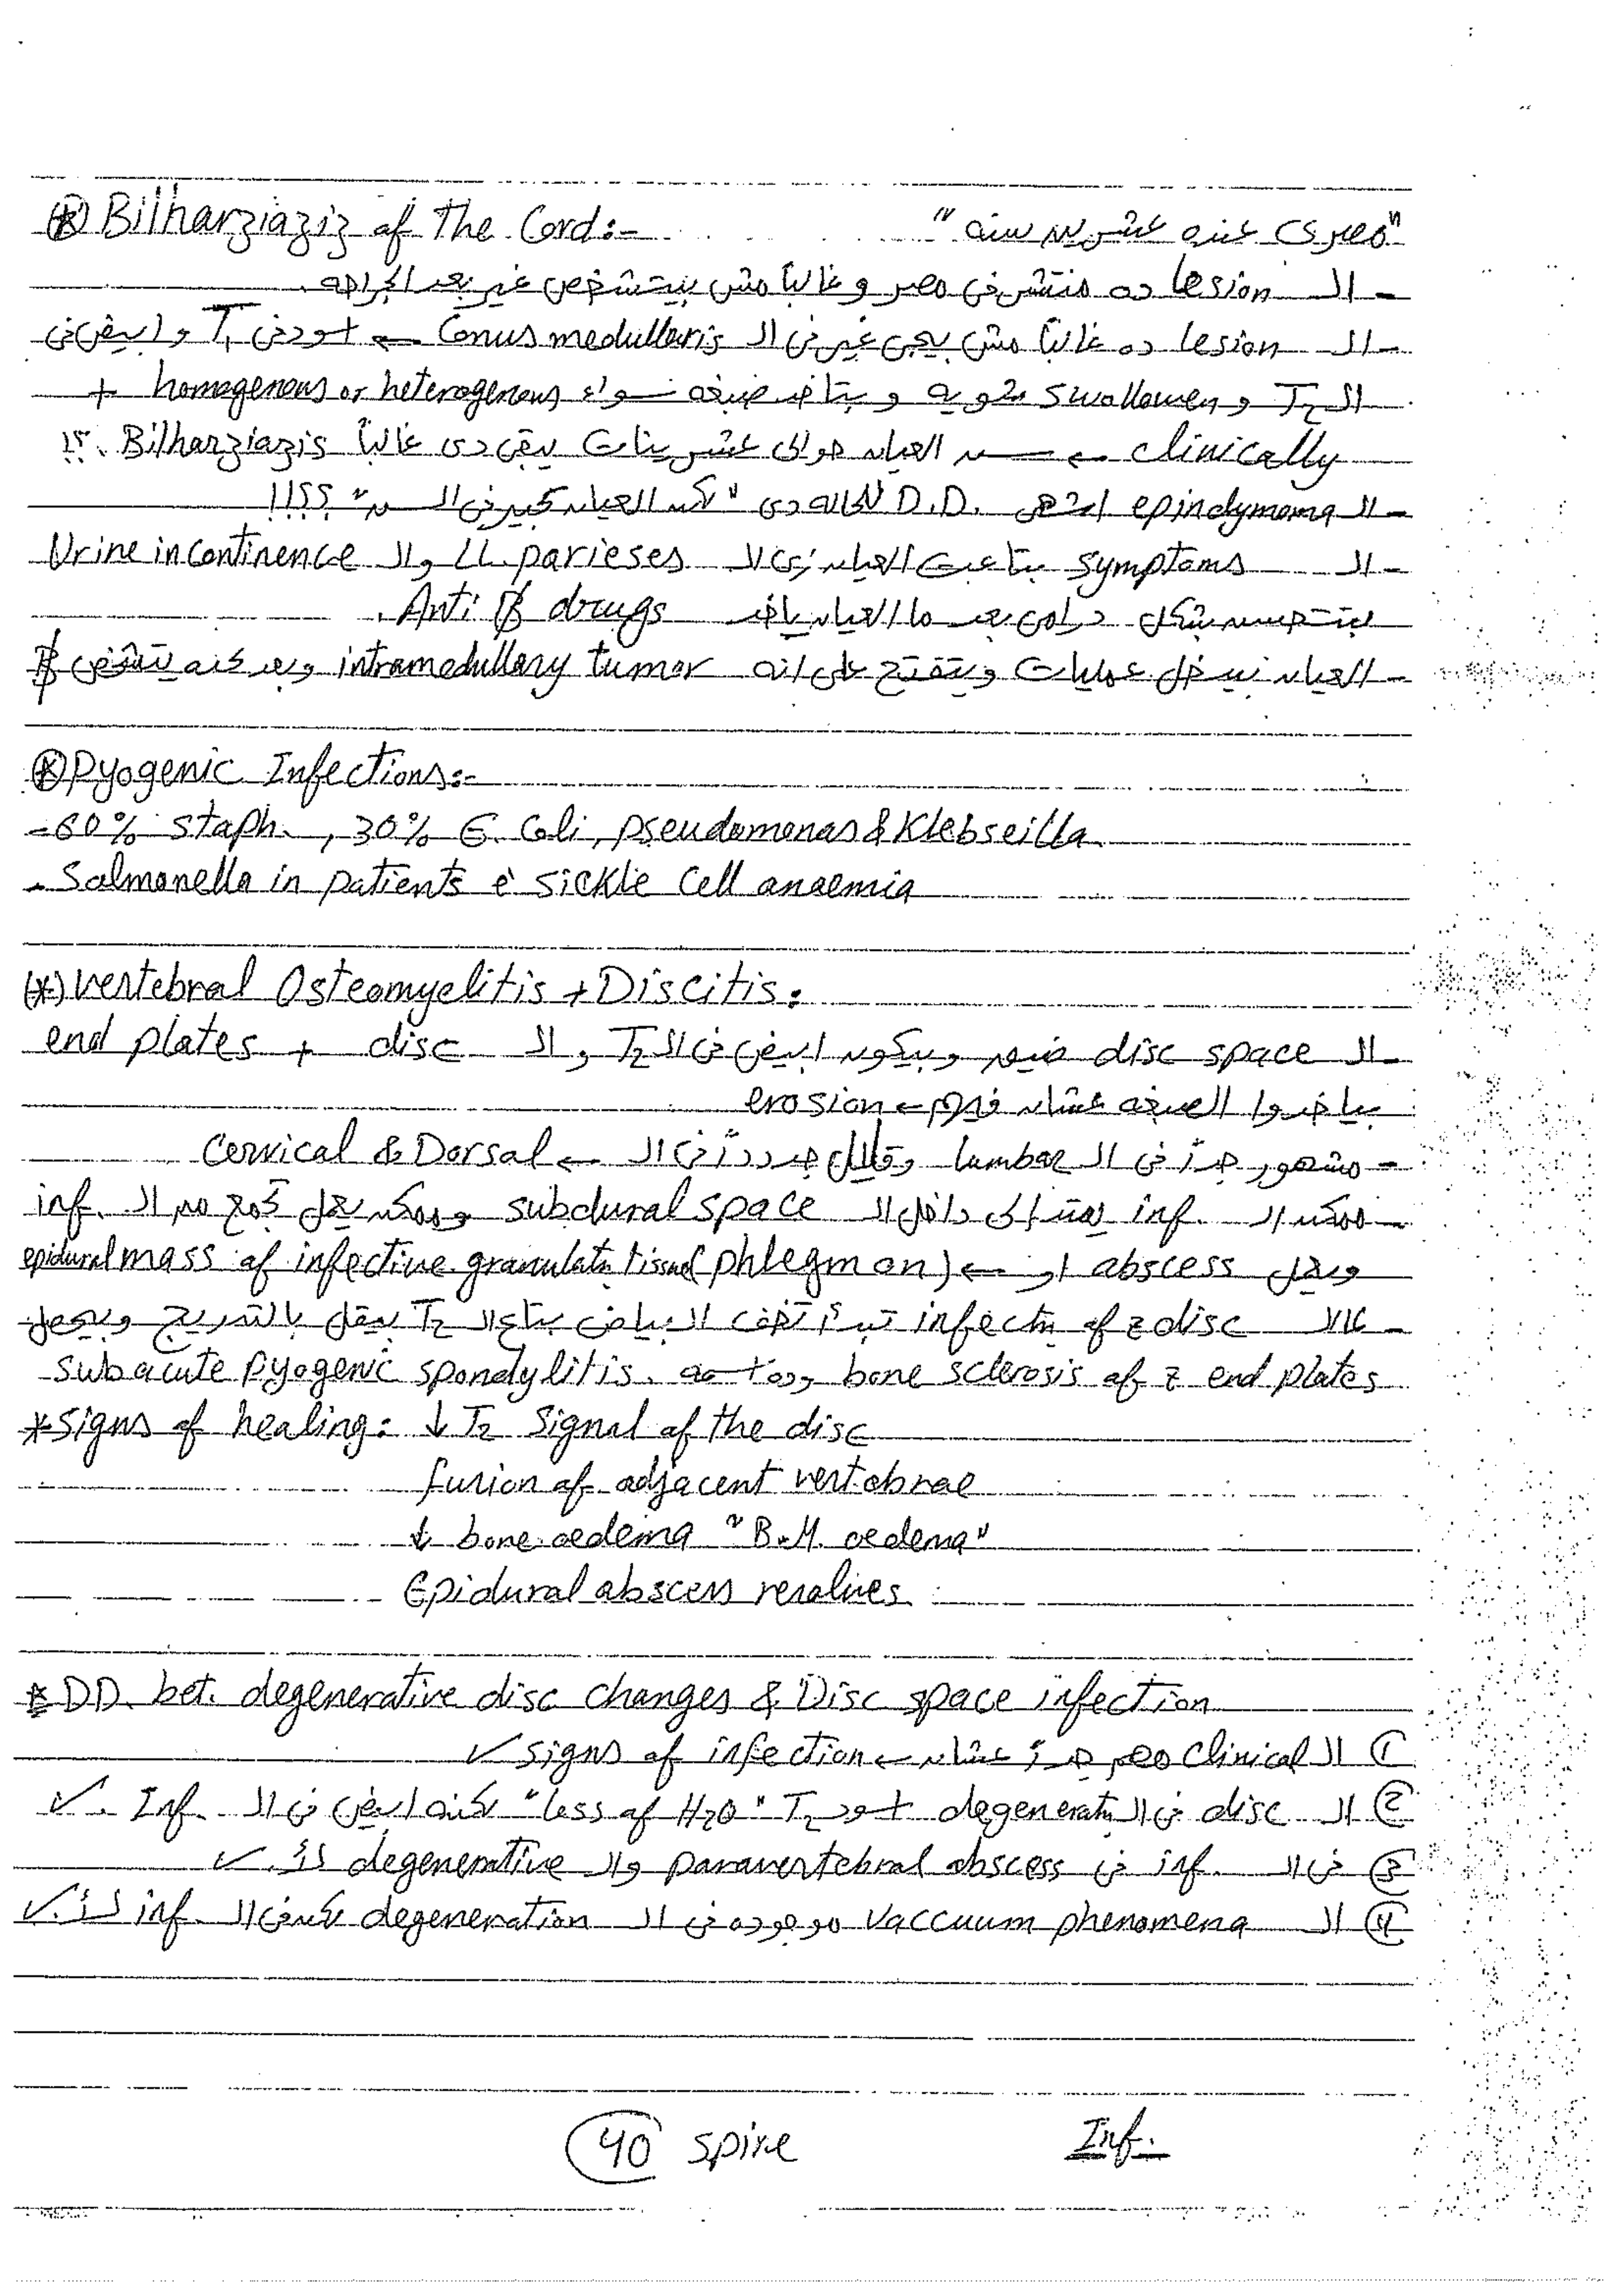 (*) Bilharziaziz of The Cord:- "مصرى عنده عشرين سنه"
- الـ lesion ده منتشر فى مصر وغالباً مش بيتشخص غير بعد الجراحه.
- الـ lesion ده غالباً مش بييجى غير فى الـ Conus medullaris ← اسود فى T1 وابيض فى
الـ T2 و swollowen شويه و بتاخد صبغه سواء homogenous or heterogenous +
clinically ← سن العيان حوالى عشرينات يبقى دى غالباً Bilharziazis
- الـ epindymoma اشهر D.D. للحاله دى "لكن العيان كبير فى السن" ؟؟!!!
- الـ symptoms بتاعت العيان زى الـ LL parieses والـ Urine incontinence
بتتحسن بشكل درامى بعد ما العيان ياخد Anti B drugs.
- العيان بيدخل عمليات وبيتفتح على انه intramedullary tumor وبعد كده يتشخص B
(*) Pyogenic Infections:-
- 60% staph., 30% E. Coli, pseudomonas & Klebseilla.
- Salmonella in patients c sickle cell anaemia
(*) Vertebral Osteomyelitis + Discitis:
- الـ disc space ضيق وبيكون ابيض فى الـ T2 والـ disc + end plates
بياخدوا الصبغه عشان فيهم ← erosion
- مشهور جداً فى الـ lumbar وقليل جداً فى الـ ← Cervical & Dorsal
- ممكن الـ inf. داخل الـ subdural space وممكن يعمل تجمع من الـ inf.
ويعمل abscess او ← (phlegmon) epidural mass of infective granulatn tissue
- لما الـ infectn of z disc تبدأ تخف البياض بتاع الـ T2 يقل بالتدريج ويحصل
bone sclerosis of z end plates وده subacute pyogenic spondylitis.
*signs of healing: ↓ T2 Signal of the disc
fusion of adjacent vertebrae
↓ bone oedema "B.M. oedema"
Epidural abscess resolves.
* DD. bet. degenerative disc changes & Disc space infection
① الـ Clinical مهم جداً عشان ← signs of infection ✓
② الـ disc فى الـ degeneratn اسود T2 "less of H2O" لكنه ابيض فى الـ Inf. ✓
③ فى الـ inf. فى paravertebral abscess والـ degenerative لأ. ✓
④ الـ vaccuum phenomena موجوده فى الـ degeneration لكن فى الـ inf. لأ. ✓
40 spine Inf.